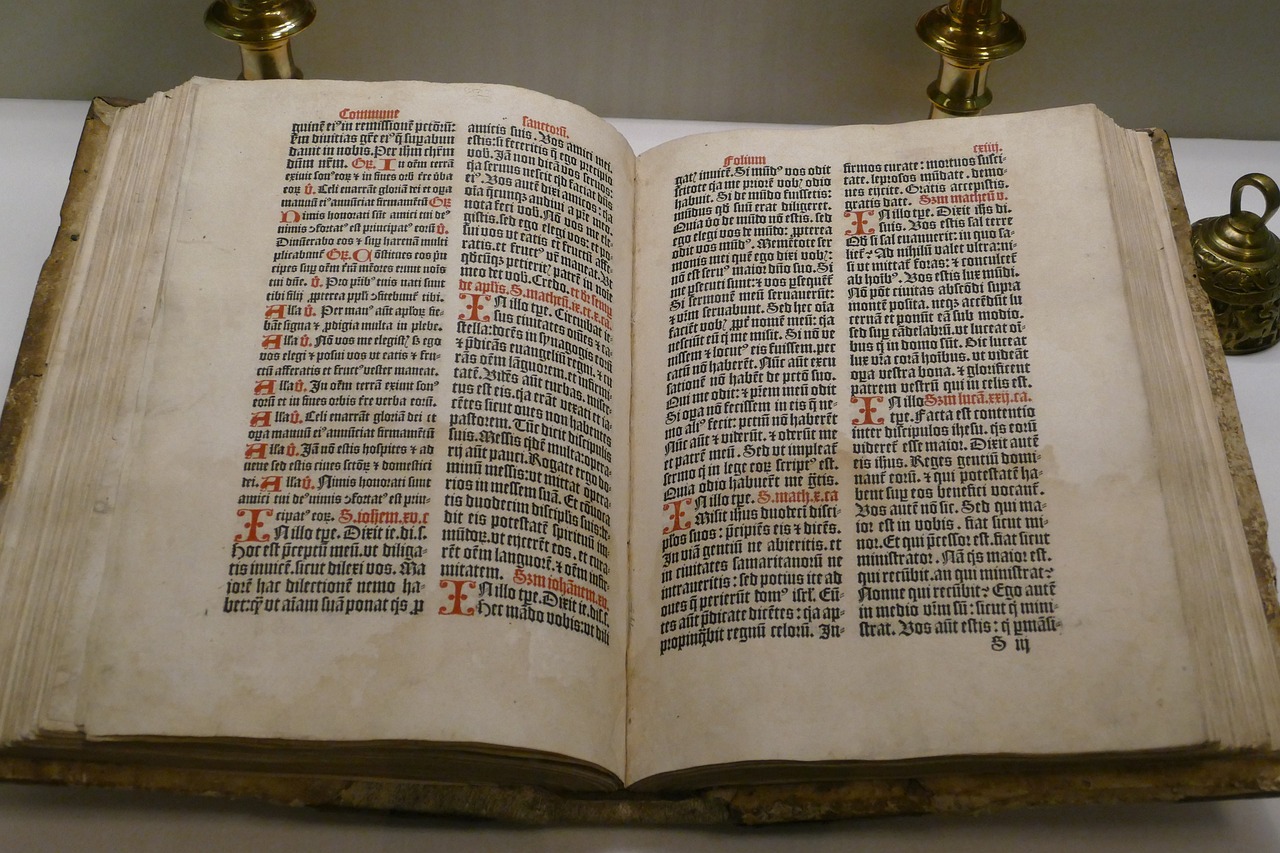 Commune
guinē ei⁹ in remissionē pctōrū:
km diuitias gr̄e ei⁹ q̄ supabun
dauit in nobis. Per ihm chrm
dūm nrm. Gr. In oēm terrā
exiuit son⁹ eoꝝ ⁊ in fines orb tr̄e vba
eoꝝ v̄. Celi enarrāt gloriā dei et opa
manuū ei⁹ annūciat firmamētū Gr
Nimis honorati sūt amici tui de⁹
nimis ↄfortat⁹ est principat⁹ eorū v̄.
Dinūerabo eos ⁊ sup harenā multi
plicabunt᷑ Gr. Cōstitues eos pn̄
cipes sup oēm trā mēores erunt noīs
tui dn̄e. v̄. Pro prīb⁹ tuis nati sunt
tibi filij ꝓpterea ppl̄i ↄfitebunt᷑ tibi.
Alla v̄. Per man⁹ aūt aploꝝ fie-
bāt signa ⁊ ꝓdigia multa in plebe.
Alla v̄. Nō vos me elegist⁊ sꝫ ego
vos elegi ⁊ posui vos vt eatis ⁊ fru-
ctū afferatis et fruct⁹ vester maneat.
Alla v̄. In oēm terrā exiuit son⁹
eorū et in fines orbis tr̄e verba eorū.
Alla v̄. Celi enarrāt gloriā dei et
opa manuū ei⁹ annūciat firmamētū
Alla v̄. Jā nō estis hospites ⁊ ad
uene sed estis ciues sctōꝝ ⁊ domestici
dei. Alla v̄. Nimis honorati sunt
amici tui de⁹ nimis ↄfortat⁹ est prin-
cipat⁹ eoꝝ. S. iohem. xv. c
In illo tpe. Dixit ie. di. s.
Hoc est p̄ceptū meū. vt diliga-
tis inuicē. sicut dilexi vos. Ma
iorē hac dilectionē nemo ha-
bet: qꝫ vt aīam suā ponat q̄s ꝓ
sanctorū.
amicis suis. Vos amici mei
estis: si feceritis q̄ ego precipio
vob. Jā non dicā vos seruos:
q̄a seruus nescit qd faciat dn̄s
ei⁹. Vos aūt dixi amicos: q̄a
oīa q̄cunqꝫ audiui a pr̄e meo.
nota feci vob. Nō vos me ele-
gistis. sed ego elegi vos: et po-
sui vos vt eatis et fructū affe-
ratis. et fruct⁹ vr̄ maneat. Vt
qd̄cunqꝫ petierit⁊ patrē in noīe
meo det vob. Credo. et de scrim
de aplis. S. matheū. ix. et. x. ca.
In illo tpe. Circuibat ie-
sus ciuitates oīnes ⁊ ca-
stella: docēs in synagogis eorū
⁊ p̄dicās euangeliū regni. ⁊ cu-
rās oēm lāguorem. et infirmi-
tatē. Vidēs aūt turbas. miser-
tus est eis. q̄a erāt vexati et ia-
cētes sicut oues non habentes
pastorem. Tūc dicit discipulis
suis. Messis qdē multa: opera-
rij aūt pauci. Rogate ergo do-
minū messis: vt mittat opera-
rios in messem suā. Et cōuoca
tis duodecim disciplis suis: de-
dit eis potestatē spirituū im-
mūdoꝝ. vt eijcerēt eos. et cura-
rēt oēm languorē. ⁊ oēm infir-
mitatem. Szm iohānem. xv.
In illo tpe. Dixit ie. dis. s.
Hec mādo vobis: vt dili
Folium
gat⁊ inuicē. Si mūd⁹ vos odit
scitote q̄a me priorē vob⁊ odio
habuit. Si de mūdo fuissetis:
mūdus qd suū erat diligeret.
Quia vo de mūdo nō estis. sed
ego elegi vos de mūdo. ꝓpterea
odit vos mūd⁹. Memētote ser
monis mei quē ego dixi vob⁊:
nō est seru⁹ maior dūo suo. Si
me ꝑsecuti sunt: ⁊ vos ꝑsequēt᷑
Si sermonē meū seruauerūt:
⁊ vrm̄ seruabunt. Sed hec oīa
faciēt vob⁊ ꝓpt̄ nomē meū: q̄a
nesciūt eū q̄ me misit. Si nō ve
nissem ⁊ locut⁹ eis fuissem. pec
catū nō haberēt. Nūc aūt excu
sationē nō habēt de pctō suo.
Qui me odit: ⁊ pr̄em meū odit
Si opa nō fecissem in eis q̄ ne-
mo ali⁹ fecit: pctm̄ nō haberēt
Nūc aūt ⁊ viderūt. ⁊ oderūt me
et patrē meū. Sed vt impleat᷑
sermo q̄ in lege eoꝝ script⁹ est.
Quia odio habuerūt me gr̄tis.
In illo tpe. S. math. x. ca
Misit ihus duodeci disci-
plos suos: p̄cipiēs eis ⁊ dicēs.
In viā gentiū ne abieritis. et
in ciuitates samaritanorū ne
intraueritis: sed potius ite ad
oues q̄ perierūt dom⁹ isrl̄. Eū-
tes aūt p̄dicate dicētes: q̄a ap-
propinq̄bit regnū celorū. In-
cxiiij.
firmos curate: mortuos susci-
tate. leprosos mūdate. demo-
nes eijcite. Gratis accepistis.
gratis date. Szm matheū v.
In illo tpe. Dixit ihs di.
suis. Vos estis sal terre
Qd̄ si sal euanuerit: in quo sa-
liet᷑? Ad nihilū valet vltra: ni-
si vt mittat᷑ foras: ⁊ conculcet᷑
ab hoīb⁹. Vos estis lux mūdi.
Nō pōt ciuitas abscōdi supra
montē posita. neqꝫ accēdūt lu
cernā et ponūt eā sub modio.
sed sup cādelabrū. vt luceat oī-
bus q̄ in domo sūt. Sic luceat
lux vr̄a corā hoībus. vt videāt
opa vestra bona. ⁊ glorificent
patrem vestrū qui in celis est.
In illo Szm lucā. xxij. ca.
tpe. Facta est contentio
inter discipulos ihesu. q̄s eorū
videret᷑ esse maior. Dixit autē
eis ihus. Reges gentiū domi-
nant᷑ eorū. ⁊ qui potestatē ha-
bent sup eos benefici vocant᷑.
Vos autē nō sic. Sed qui ma-
ior est in vobis. fiat sicut mi-
nor. Et qui p̄cessor est. fiat sicut
ministrator. Nā q̄s maior est.
qui recūbit. an qui ministrat⁊
Nonne qui recūbit⁊ Ego autē
in medio vrm̄ sū: sicut q̄ mini-
strat. Vos aūt estis: q̄ ꝑmāsi-
S iij